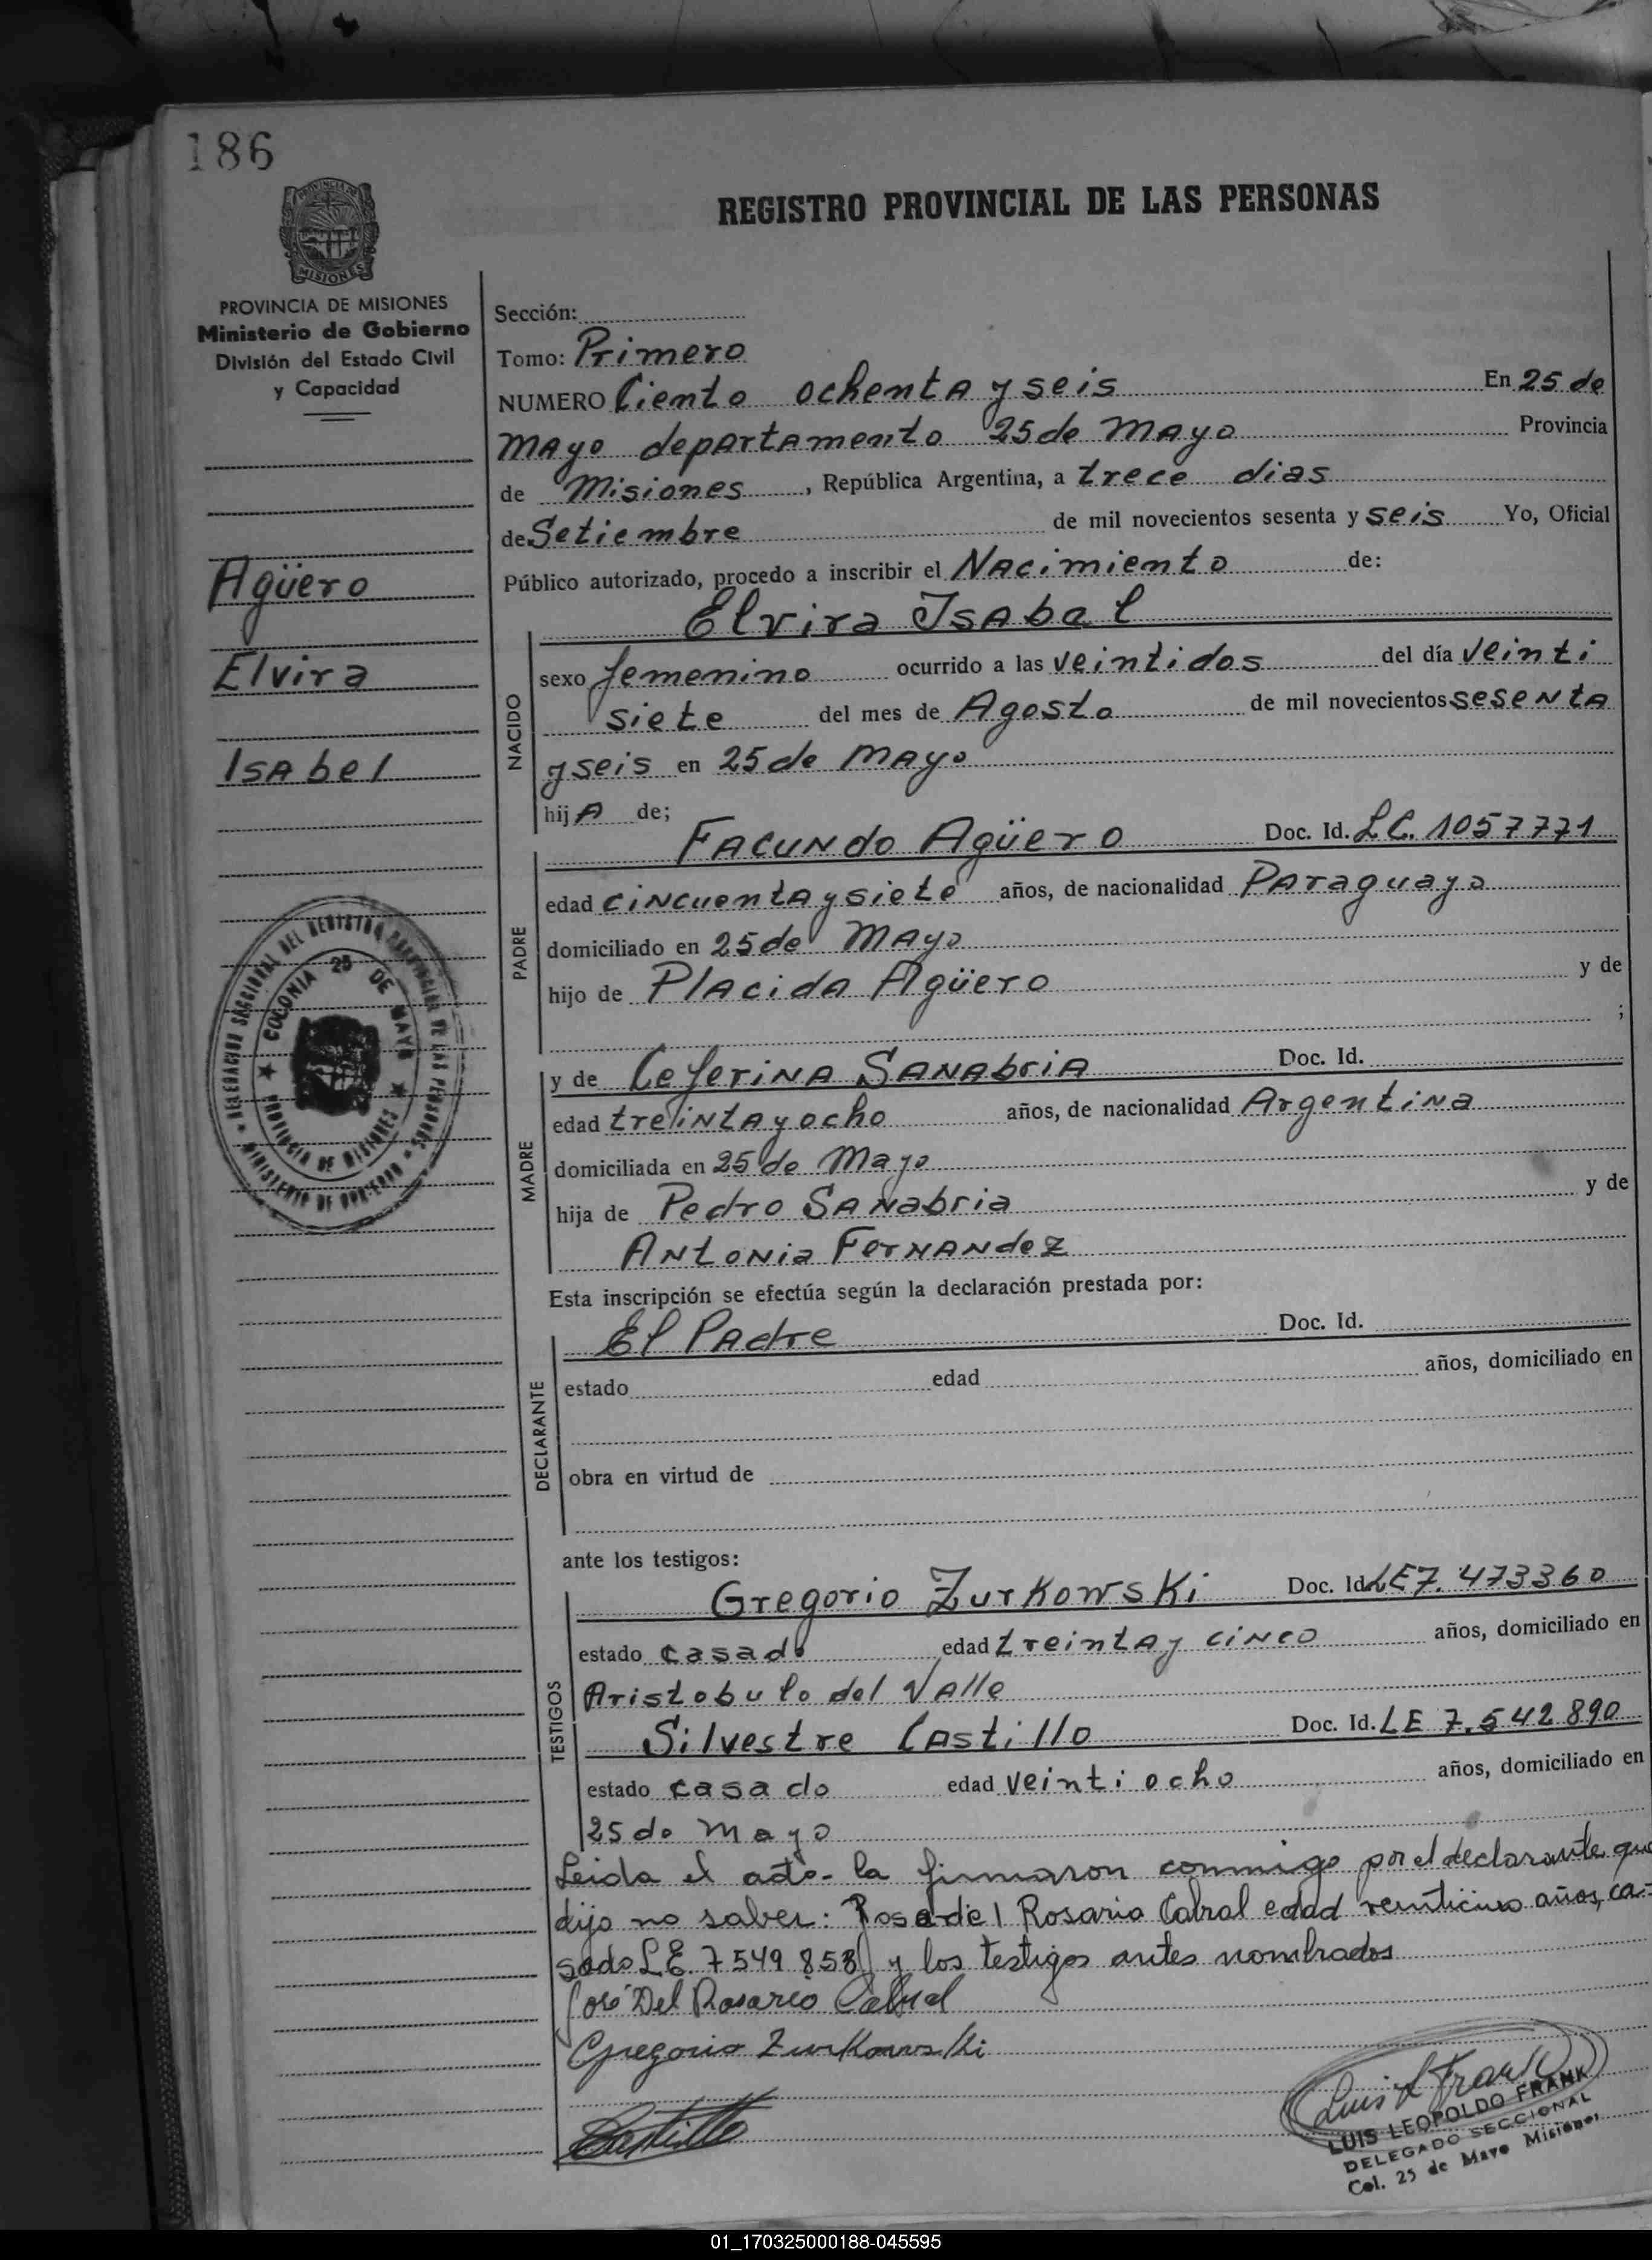 186
REGISTRO PROVINCIAL DE LAS PERSONAS
PROVINCIA DE MISIONES
MISIONES
PROVINCIA DE MISIONES
Ministerio de Gobierno
División del Estado Civil
y Capacidad
Agüero
Elvira
Isabel
DELEGACION SECCIONAL DEL REGISTRO PROVINCIAL DE LAS PERSONAS
MINISTERIO DE GOBIERNO
COLONIA 25 DE MAYO
PROVINCIA DE MISIONES
Sección:
Tomo: Primero
NUMERO Ciento ochenta y seis En 25 de
Mayo departamento 25 de Mayo Provincia
de Misiones, República Argentina, a trece dias
de Setiembre de mil novecientos sesenta y seis Yo, Oficial
Público autorizado, procedo a inscribir el Nacimiento de:
Elvira Isabel
NACIDO
sexo femenino ocurrido a las veintidos del día veinti
siete del mes de Agosto de mil novecientos sesenta
y seis en 25 de Mayo
hija de;
PADRE
Facundo Agüero Doc. Id. LC. 1057771
edad cincuenta y siete años, de nacionalidad Paraguayo
domiciliado en 25 de Mayo
hijo de Placida Agüero y de
;
MADRE
y de Ceferina Sanabria Doc. Id.
edad treinta y ocho años, de nacionalidad Argentina
domiciliada en 25 de Mayo
hija de Pedro Sanabria y de
Antonia Fernandez
Esta inscripción se efectúa según la declaración prestada por:
DECLARANTE
El Padre Doc. Id.
estado edad años, domiciliado en
obra en virtud de
ante los testigos:
TESTIGOS
Gregorio Zurkowski Doc. Id. LE 7.473360
estado casado edad treinta y cinco años, domiciliado en
Aristobulo del Valle
Silvestre Castillo Doc. Id. LE 7.542890
estado casado edad veinti ocho años, domiciliado en
25 de Mayo
Leida el acta - la firmaron conmigo por el declarante que
dijo no saber: Jose del Rosario Cabral edad veinticinco años, ca-
sado LE. 7549858 y los testigos antes nombrados
José Del Rosario Cabral
Gregorio Zurkowski
Castillo
Luis L Frank
LUIS LEOPOLDO FRANK
DELEGADO SECCIONAL
Col. 25 de Mayo Misiones
01_170325000188-045595